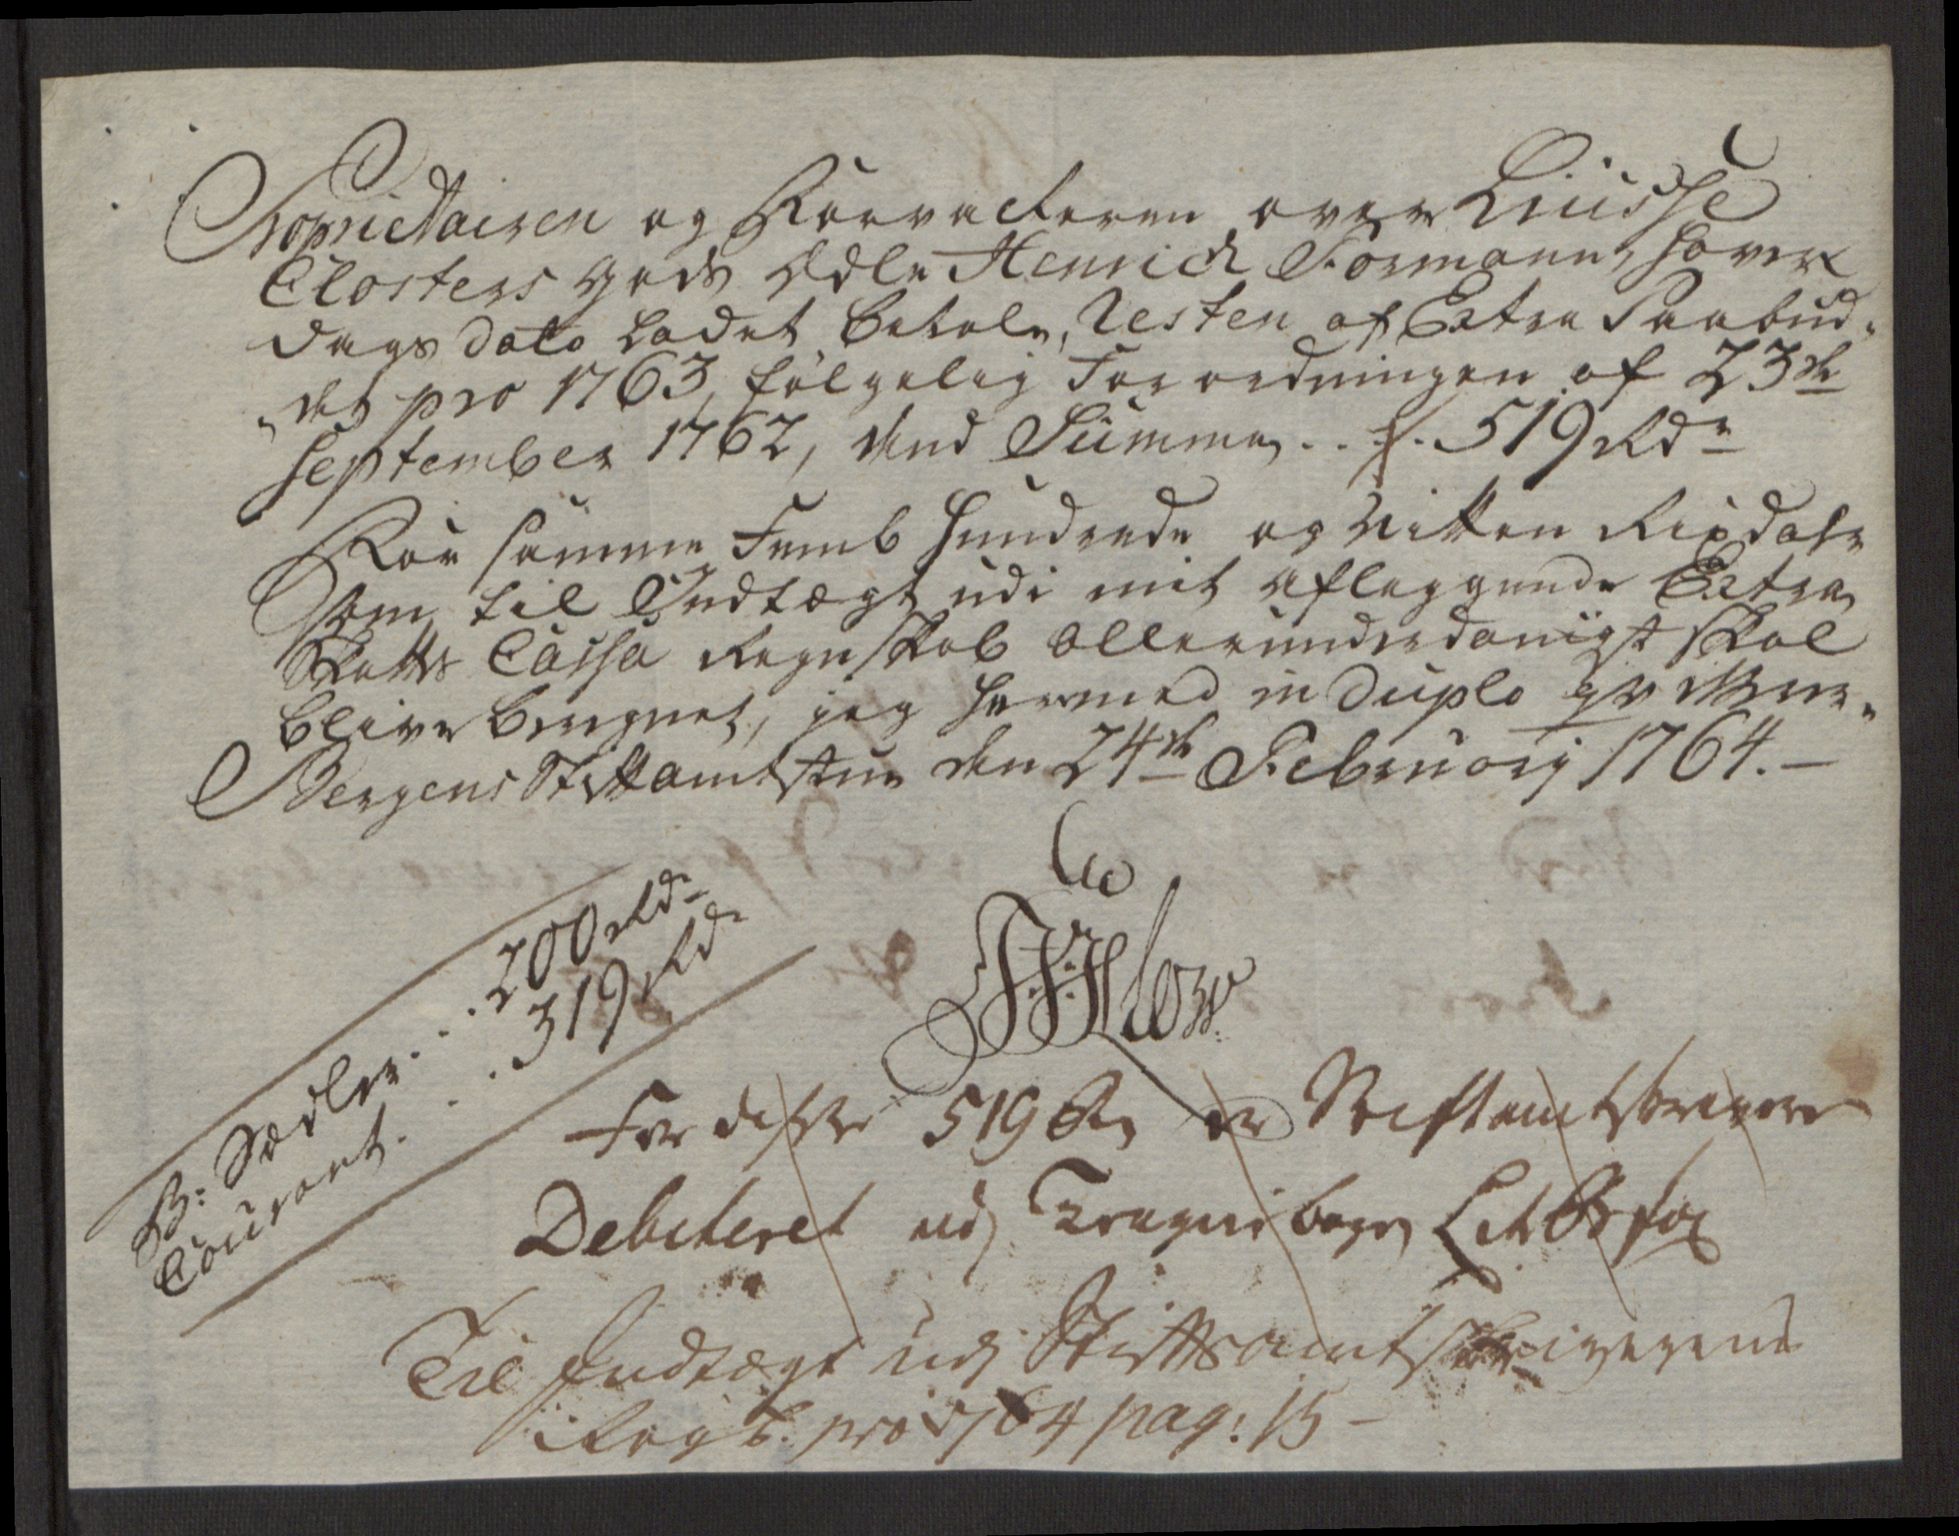 Proprietairen og Forvalteren over Liusse
Closters gods Ædle Henrich Formann, haver
dags dato ladet betale, Resten af Extra Paabud-
det pro 1763, følgelig Forordningen af 23de
September 1762, dend Summa . . . 519 Rdr
For samme Femb hundrede og Nitten Rixdaler
som til Indtægt udi mit aflæggende Extra
Skatts Cassa Regnskab allerunderdanigst skal
blive beregnet, jeg hermed in duplo qvitterer.
Bergens Stiftamtstue den 24de Februarij 1764. —
B: Sedler . . . 200 Rdr
Courant . . . 319 Rdr
For disse 519 Rdr er Stiftamtskriveren
Debiteret udj bogen Lit
Til Indtægt udj Stiftsamtskriverens
Regsk. pro 1764 pag: 15 —